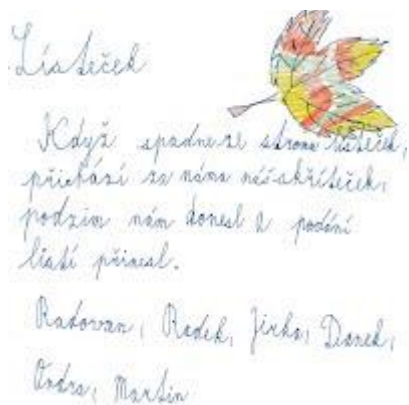 Lísteček
Když spadne ze stromu lísteček,
přichází za náma náš skříteček,
podzim nám donesl a
listí přinesl.
Radovan, Radek, Jirka, Danek,
Ondra, Martin